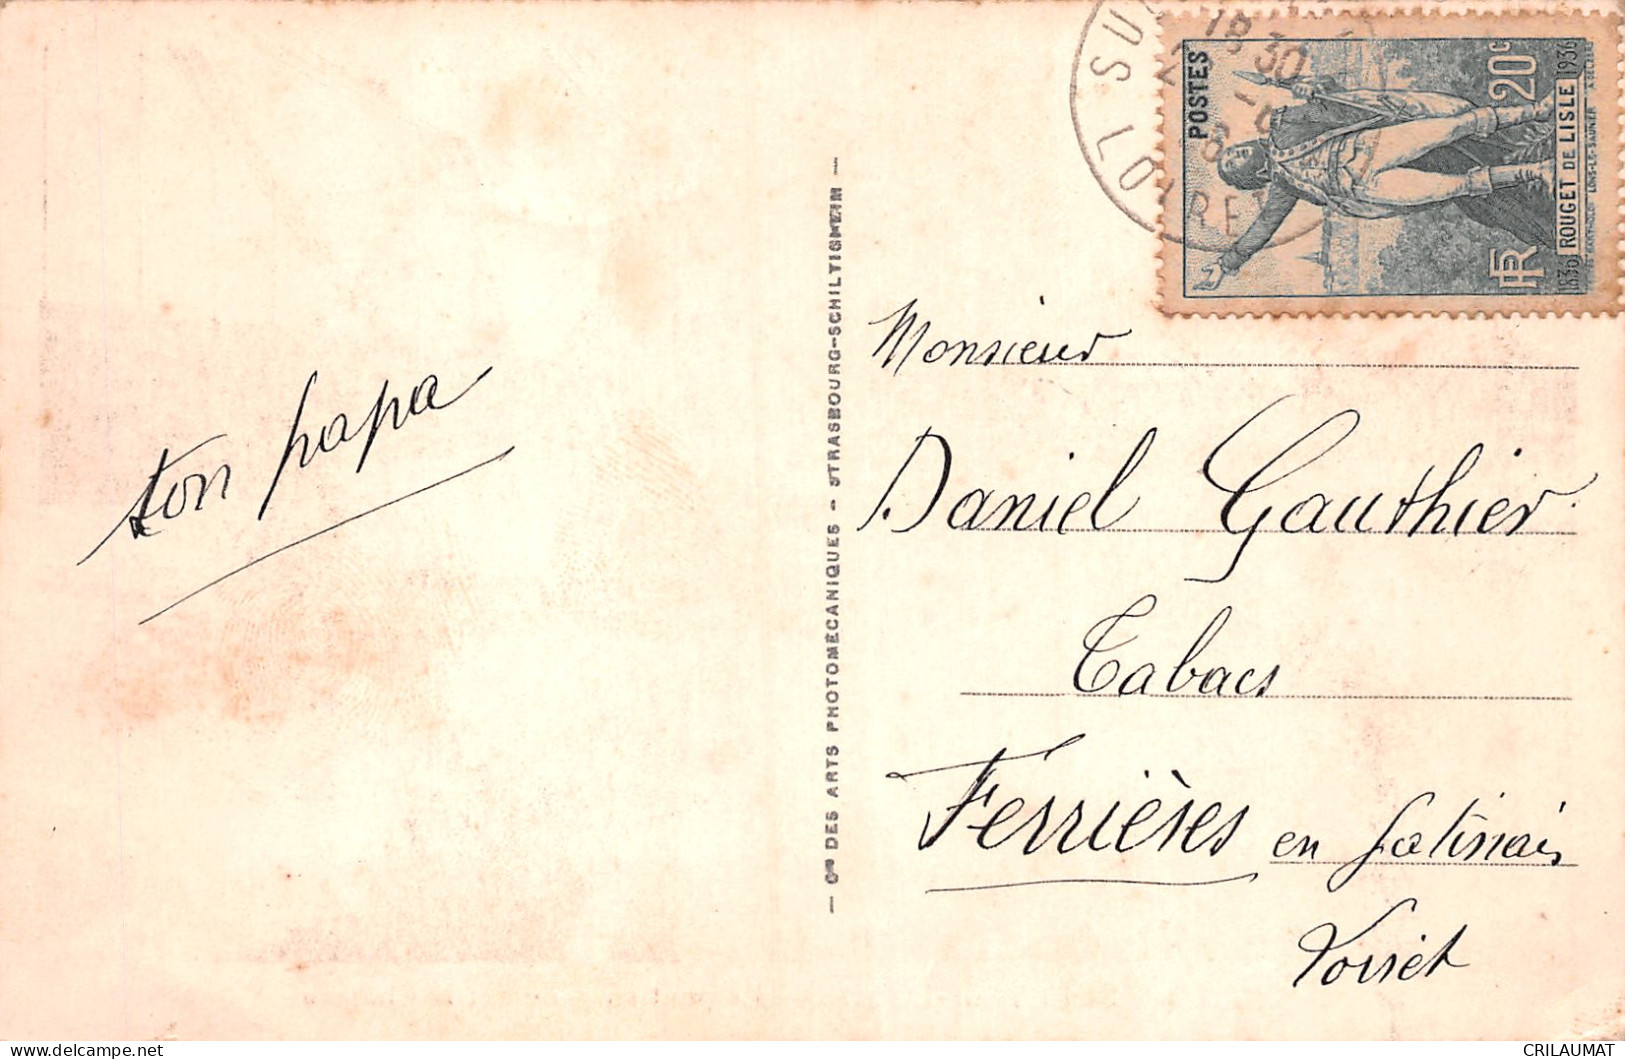 SU
18 30
LOIRET
POSTES
20c
1836 ROUGET DE LISLE 1936
RF
ton papa
— Cie DES ARTS PHOTOMÉCANIQUES - STRASBOURG-SCHILTIGHEIM —
Monsieur
Daniel Gauthier
Tabacs
Ferrières en Gatinais
Loiret
CRILAUMAT